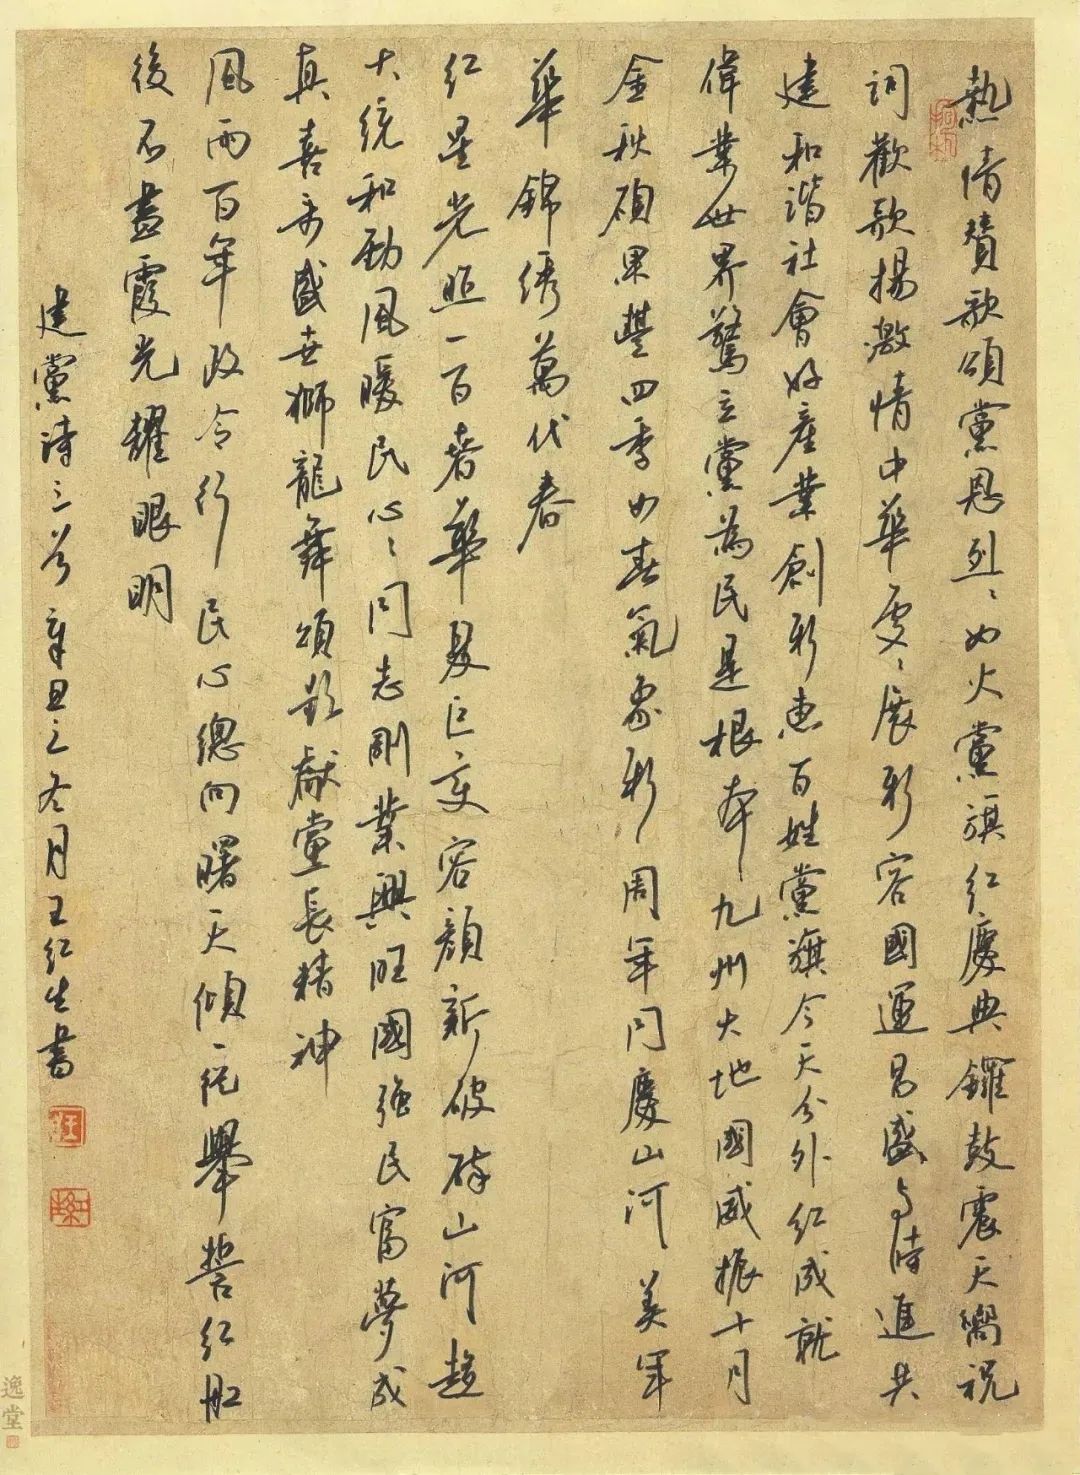 熱情贊歌頌黨恩烈〻如火黨旗紅慶典鑼鼓震天響祝
詞歡歌揚激情中華處〻展新容國運昌盛與時進共
建和諧社會好產業創新惠百姓黨旗今天分外紅成就
偉業世界驚立黨為民是根本九州大地國威振十月
金秋碩果豐四季如春氣象新〻周年同慶山河美
華錦綉萬代春
紅星光照一百春華夏巨變容顏新破碎山河趨
大統和勁風暖民心〻同志剛業興旺國強民富夢成
真喜看盛世獅龍舞頌歌獻黨長精神
風雨百年政令行民心總向曙天傾一從舉誓紅船
後不盡霞光耀眼明
建黨詩三首辛丑之冬月王紅生書
逸堂